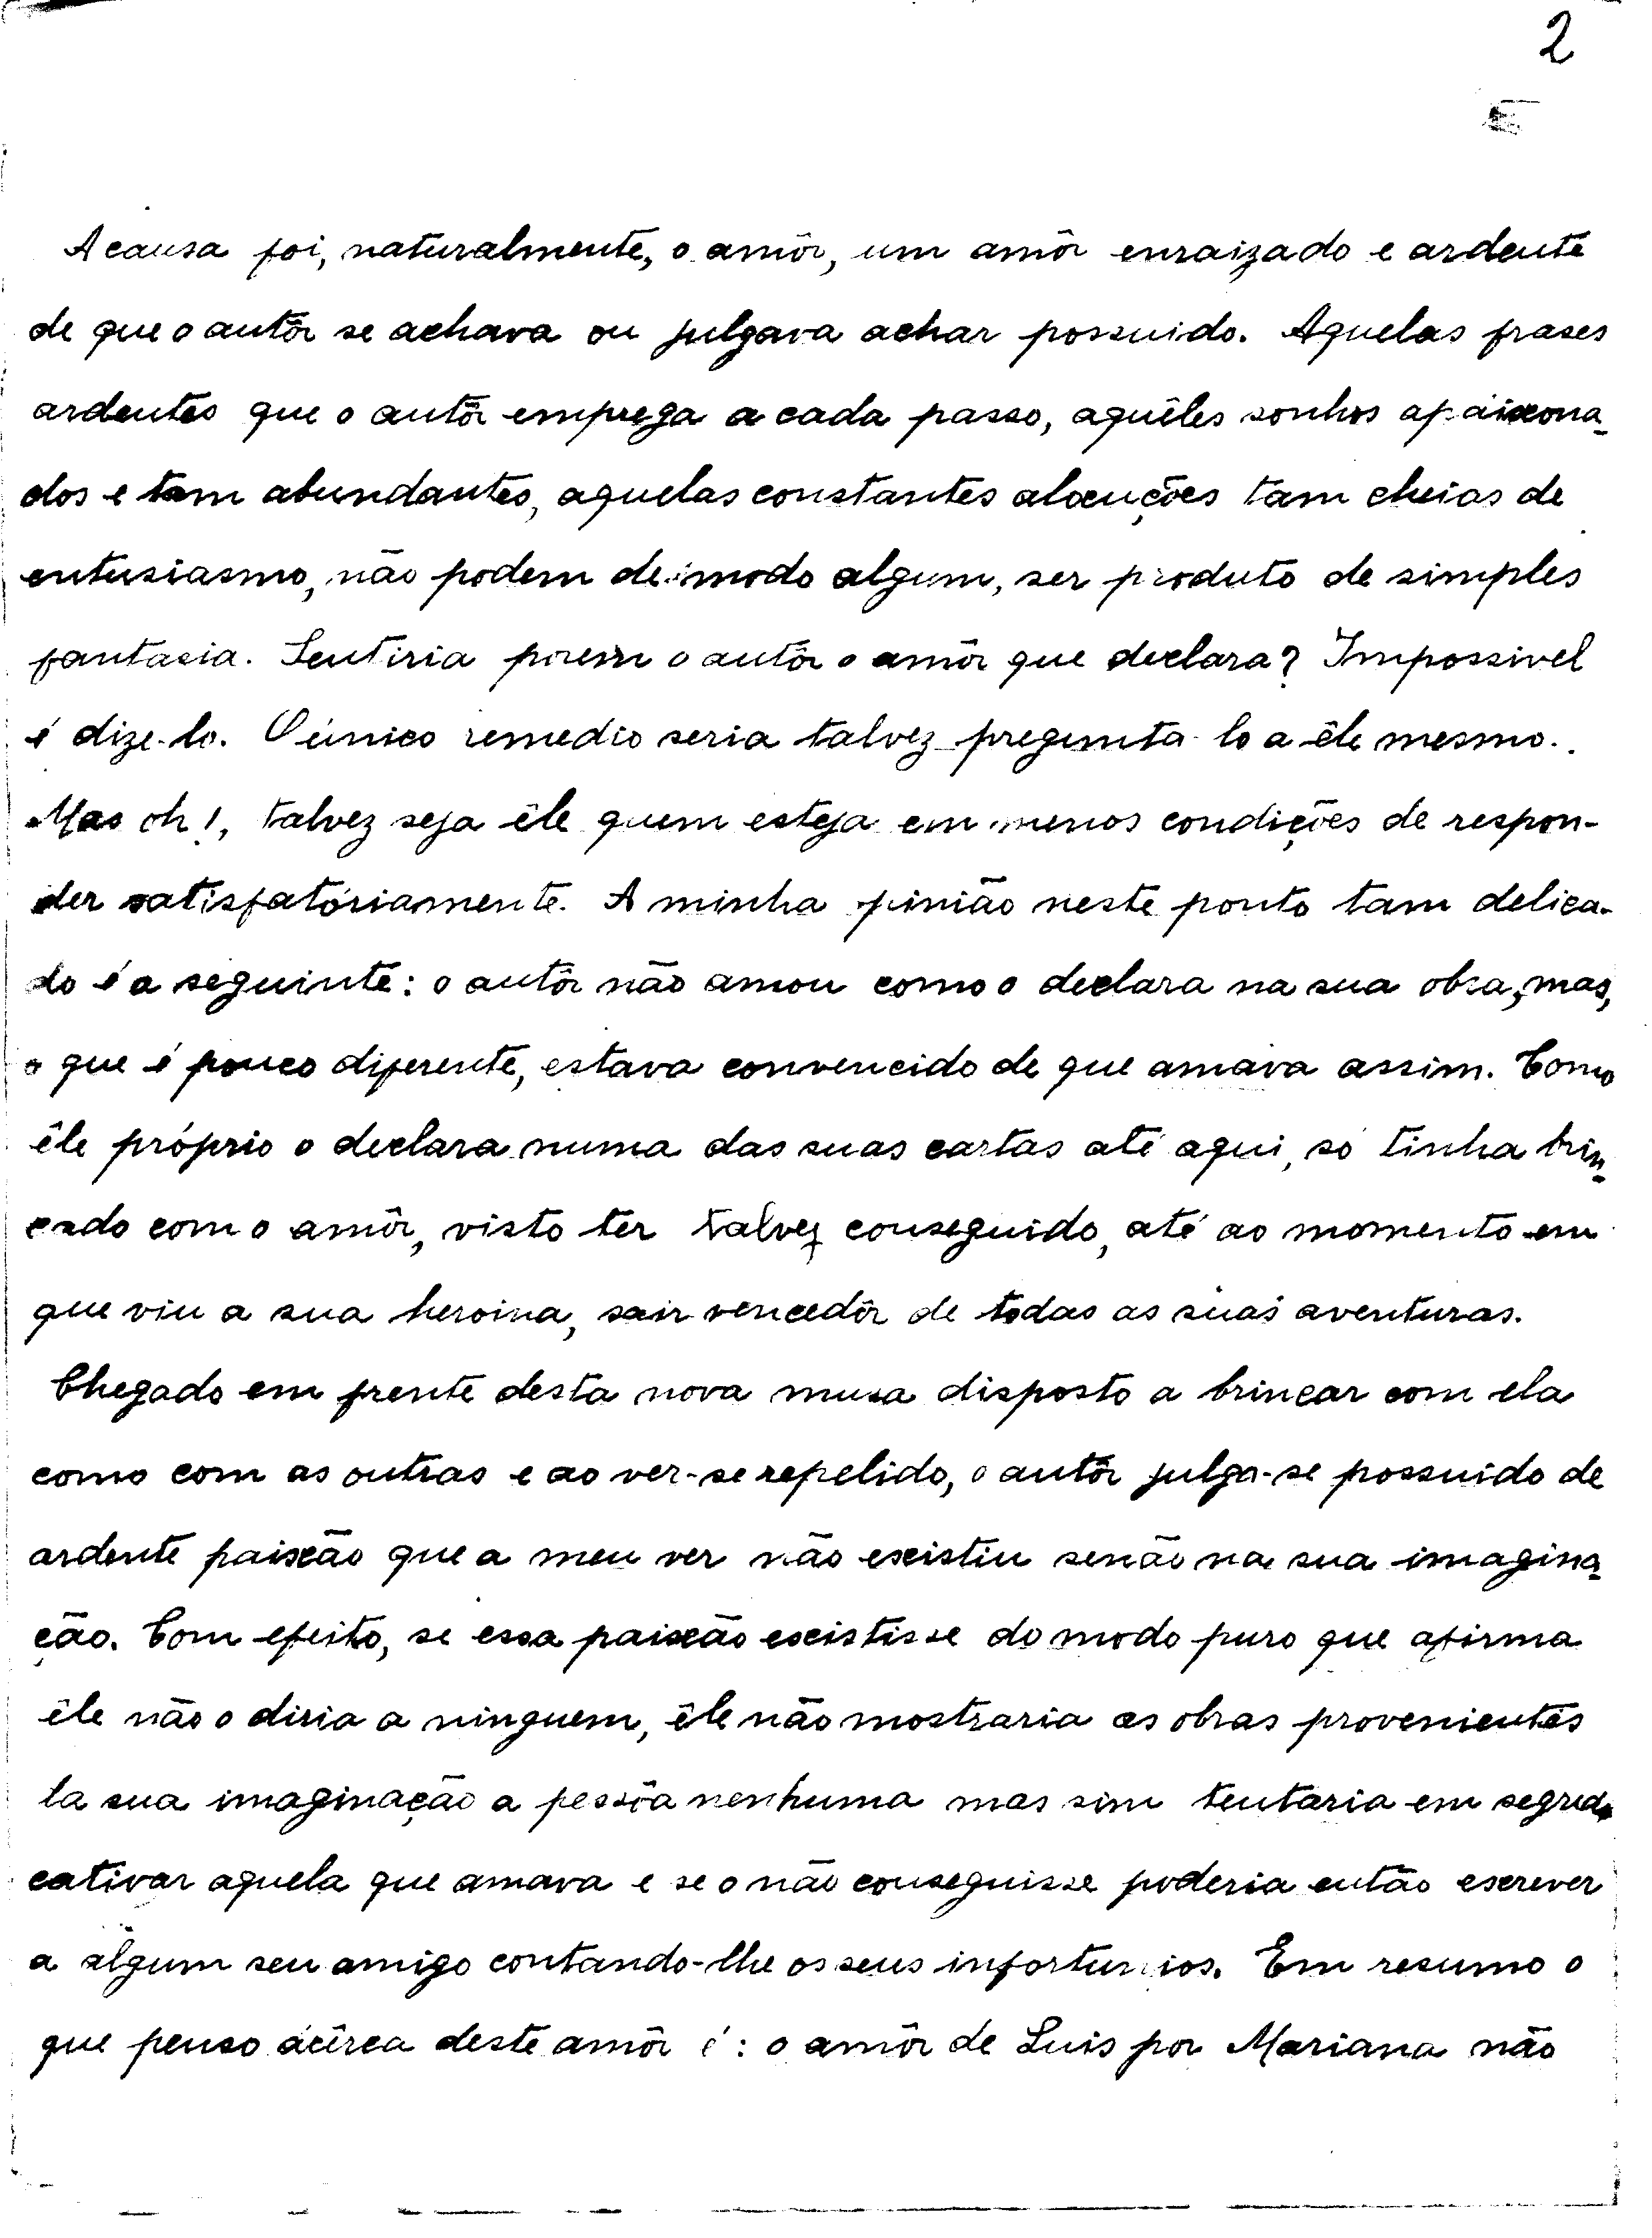 2
A causa foi, naturalmente, o amôr, um amôr enraizado e ardente
de que o autôr se achava ou julgava achar possuido. Aquelas frases
ardentes que o autôr emprega a cada passo, aquêles sonhos apaixona-
dos e tam abundantes, aquelas constantes alocuções tam cheias de
entusiasmo, não podem de modo algum, ser produto de simples
fantasia. Sentiria porem o autôr o amôr que declara? Impossivel
é dize-lo. O único remedio seria talvez pregunta-lo a êle mesmo..
Mas oh!, talvez seja êle quem esteja em menos condições de respon-
der satisfatóriamente. A minha opinião neste ponto tam delica-
do é a seguinte: o autôr não amou como o declara na sua obra, mas,
o que é pouco diferente, estava convencido de que amava assim. Como
êle próprio o declara numa das suas cartas até aqui, só tinha brin-
cado com o amôr, visto ter talvez conseguido, até ao momento em
que viu a sua heroina, sair vencedôr de todas as suas aventuras.
Chegado em frente desta nova musa disposto a brincar com ela
como com as outras e ao ver-se repelido, o autôr julga-se possuido de
ardente paixão que a meu ver não existiu senão na sua imagina-
ção. Com efeito, se essa paixão existisse do modo puro que afirma
êle não o diria a ninguem, êle não mostraria as obras provenientes
da sua imaginação a pessôa nenhuma mas sim tentaria em segredo
cativar aquela que amava e se o não conseguisse poderia então escrever
a algum seu amigo contando-lhe os seus infortunios. Em resumo o
que penso ácêrca deste amôr é: o amôr de Luis por Mariana não